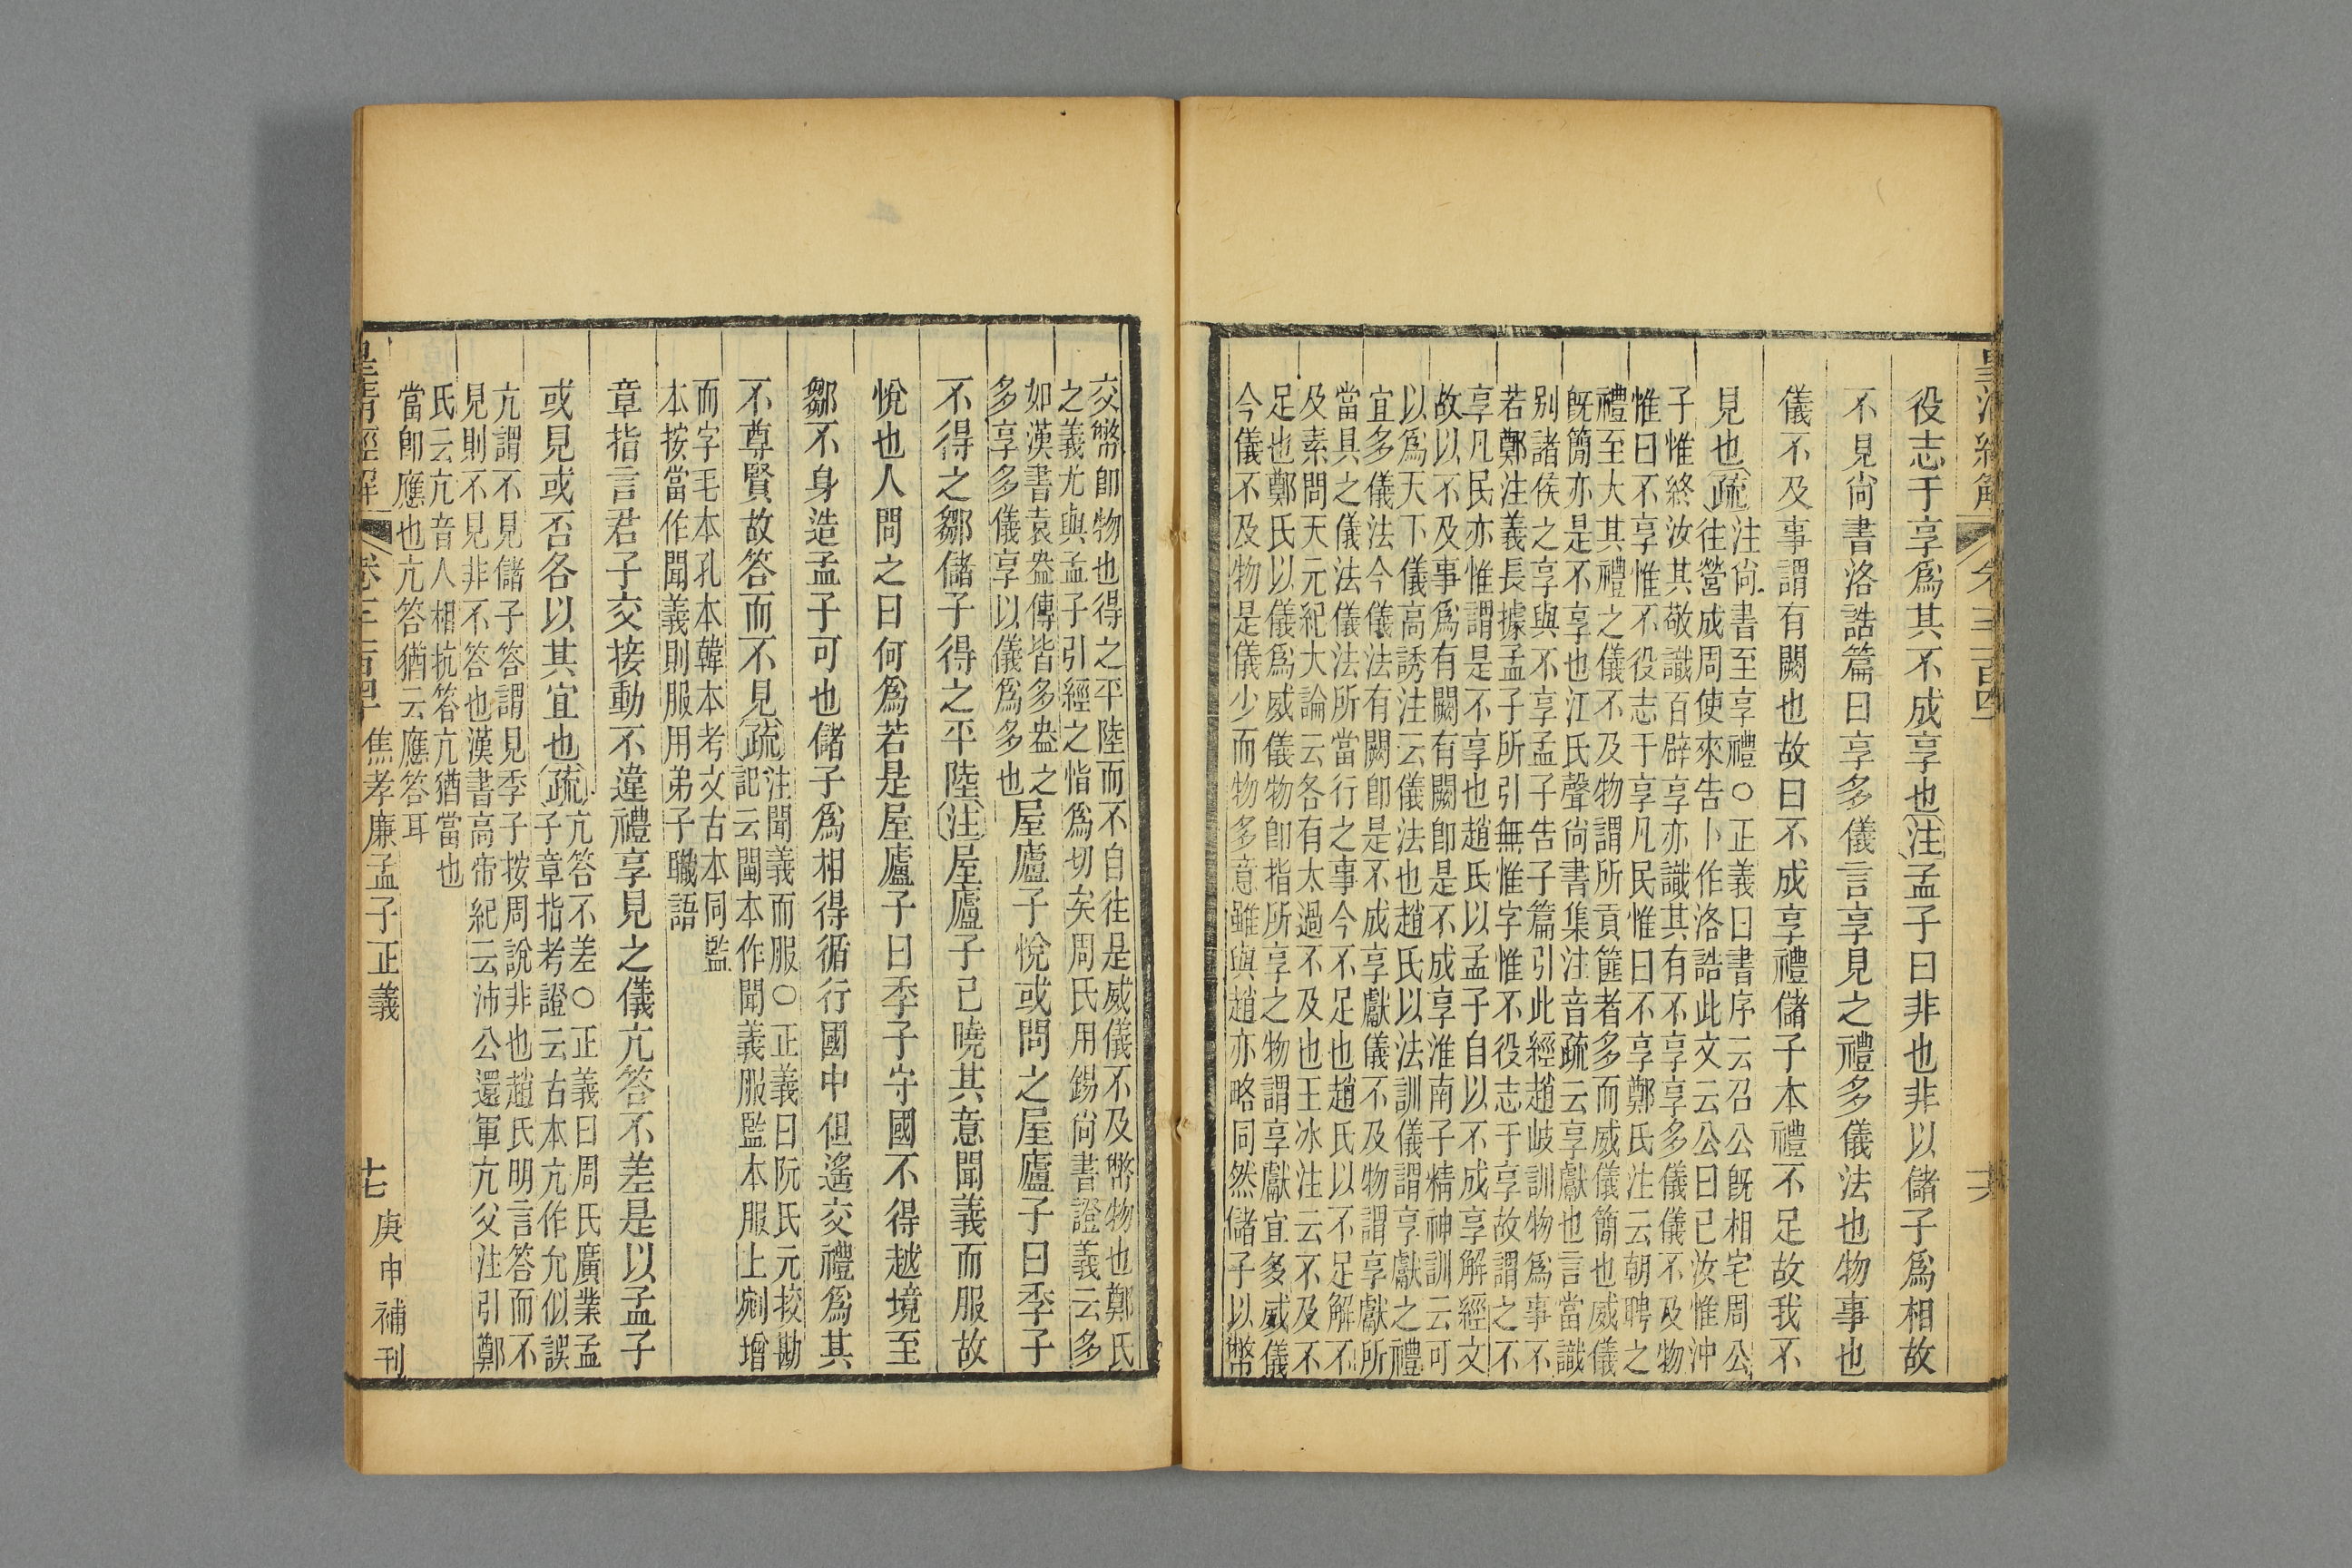 役志于享爲其不成享也注孟子曰非也非以儲子爲相故
不見尚書洛誥篇曰享多儀言享見之禮多儀法也物事也
儀不及事謂有闕也故曰不成享禮儲子本禮不足故我不
見也疏注尚書至享禮○正義曰書序云召公旣相宅周公
往營成周使來告卜作洛誥此文云公曰已汝惟沖
子惟終汝其敬識百辟享亦識其有不享享多儀儀不及物
惟曰不享惟不役志于享凡民惟曰不享鄭氏注云朝聘之
禮至大其禮之儀不及物謂所貢篚者多而威儀簡也威儀
旣簡亦是不享也江氏聲尚書集注音疏云享獻也言當識
别諸侯之享與不享孟子告子篇引此經趙岐訓物爲事不
若鄭注義長據孟子所引無惟字惟不役志于享故謂之不
享凡民亦惟謂是不享也趙氏以孟子自以不成享解經文
故以不及事爲有闕有闕卽是不成享淮南子精神訓云可
以爲天下儀高誘注云儀法也趙氏以法訓儀謂享獻之禮
宜多儀法今儀法有闕卽是不成享獻儀不及物謂享獻所
當具之儀法儀法所當行之事今不足也趙氏以不足解不
及素問天元紀大論云各有太過不及也王冰注云不及不
足也鄭氏以儀爲威儀物卽指所享之物謂享獻宜多威儀
今儀不及物是儀少而物多意雖與趙亦略同然儲子以幣
皇清經解
卷三百四
共
交幣卽物也得之平陸而不自往是威儀不及幣物也鄭氏
之義尤與孟子引經之恉爲切矣周氏用錫尚書證義云多
如漢書袁盎傳皆多盎之
多享多儀享以儀爲多也屋廬子悅或問之屋廬子曰季子
不得之鄒儲子得之平陸注屋廬子已曉其意聞義而服故
悅也人問之曰何爲若是屋廬子曰季子守國不得越境至
鄒不身造孟子可也儲子爲相得循行國中但遙交禮爲其
不尊賢故答而不見疏注聞義而服○正義曰阮氏元挍勘
記云閩本作聞義服監本服上剜增
而字毛本孔本韓本考文古本同監
本按當作聞義則服用弟子職語
章指言君子交接動不違禮享見之儀亢答不差是以孟子
或見或否各以其宜也疏亢答不差○正義曰周氏廣業孟
子章指考證云古本亢作允似誤
亢謂不見儲子答謂見季子按周說非也趙氏明言答而不
見則不見非不答也漢書高帝紀云沛公還軍亢父注引鄭
氏云亢音人相抗答亢猶當也
當卽應也亢答猶云應答耳
皇清經解
卷三百四
焦孝廉孟子正義
七
庚申補刊